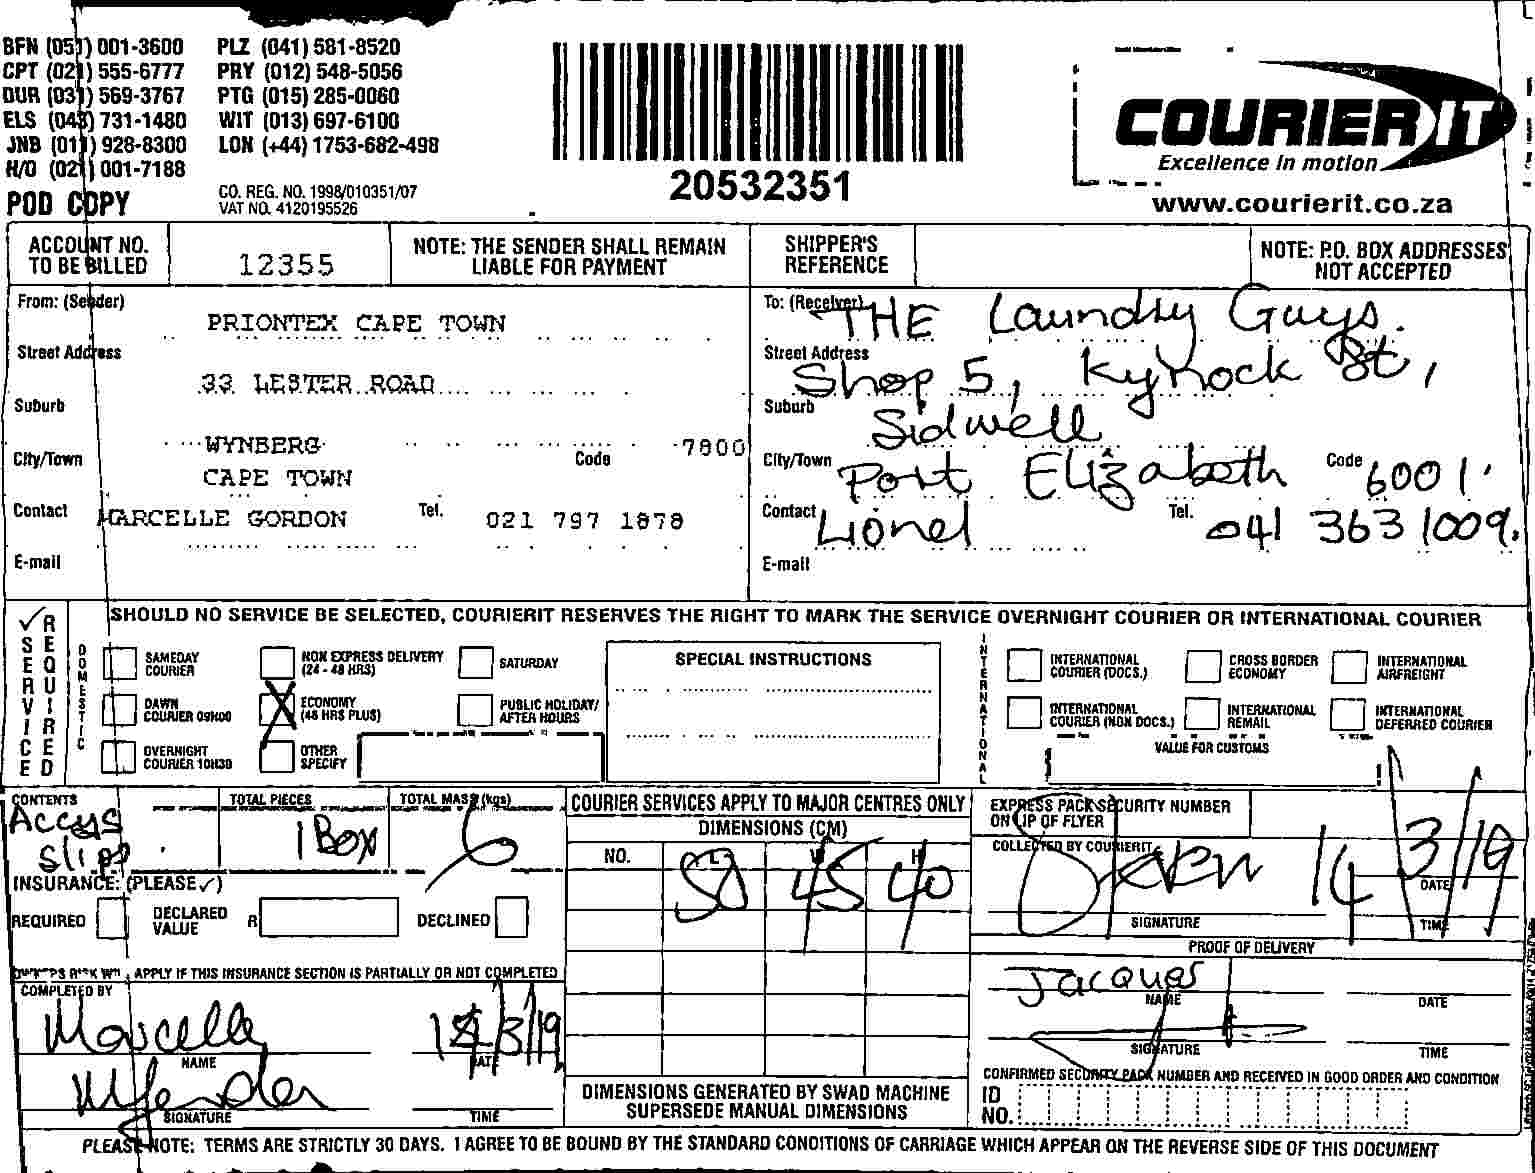 BFN (051) 001-3600 PLZ (041) 581-8520
CPT (021) 555-6777 PRY (012) 548-5056
DUR (031) 569-3767 PTG (015) 285-0060
ELS (043) 731-1480 WIT (013) 697-6100
JNB (011) 928-8300 LON (+44) 1753-682-498
H/O (021) 001-7188
CO. REG. NO. 1998/010351/07
VAT NO. 4120195526
POD COPY
20532351
COURIER IT
Excellence in motion
www.courierit.co.za
ACCOUNT NO. TO BE BILLED
12355
NOTE: THE SENDER SHALL REMAIN LIABLE FOR PAYMENT
SHIPPER'S REFERENCE
NOTE: P.O. BOX ADDRESSES NOT ACCEPTED
From: (Sender)
PRIONTEX CAPE TOWN
Street Address
33 LESTER ROAD
Suburb
WYNBERG
City/Town
CAPE TOWN
Code
7800
Contact
MARCELLE GORDON
Tel.
021 797 1878
E-mail
To: (Receiver)
THE Laundry Guys.
Street Address
Shop 5, Kynock St,
Suburb
Sidwell
City/Town
Port Elizabeth
Code
6001.
Contact
Lionel
Tel.
041 363 1009.
E-mail
SERVICE REQUIRED
SHOULD NO SERVICE BE SELECTED, COURIERIT RESERVES THE RIGHT TO MARK THE SERVICE OVERNIGHT COURIER OR INTERNATIONAL COURIER
DOMESTIC
SAMEDAY COURIER
NON EXPRESS DELIVERY (24 - 48 HRS)
SATURDAY
DAWN COURIER 09H00
ECONOMY (48 HRS PLUS)
PUBLIC HOLIDAY/ AFTER HOURS
OVERNIGHT COURIER 10H30
OTHER SPECIFY
SPECIAL INSTRUCTIONS
INTERNATIONAL
INTERNATIONAL COURIER (DOCS.)
CROSS BORDER ECONOMY
INTERNATIONAL AIRFREIGHT
INTERNATIONAL COURIER (NON DOCS.)
INTERNATIONAL REMAIL
INTERNATIONAL DEFERRED COURIER
VALUE FOR CUSTOMS
CONTENTS
Accys
Slips
TOTAL PIECES
1 Box
TOTAL MASS (kgs)
6
INSURANCE: (PLEASE ✓)
REQUIRED
DECLARED VALUE
R
DECLINED
OWNER'S RISK WILL APPLY IF THIS INSURANCE SECTION IS PARTIALLY OR NOT COMPLETED
COMPLETED BY
Marcelle
NAME
DATE
SIGNATURE
TIME
COURIER SERVICES APPLY TO MAJOR CENTRES ONLY
DIMENSIONS (CM)
NO. L W H
50 45 40
DIMENSIONS GENERATED BY SWAD MACHINE SUPERSEDE MANUAL DIMENSIONS
EXPRESS PACK SECURITY NUMBER ON LIP OF FLYER
COLLECTED BY COURIERIT
14/3/19
DATE
SIGNATURE
TIME
PROOF OF DELIVERY
Jacques
NAME
DATE
SIGNATURE
TIME
CONFIRMED SECURITY PACK NUMBER AND RECEIVED IN GOOD ORDER AND CONDITION
ID NO.
PLEASE NOTE: TERMS ARE STRICTLY 30 DAYS. I AGREE TO BE BOUND BY THE STANDARD CONDITIONS OF CARRIAGE WHICH APPEAR ON THE REVERSE SIDE OF THIS DOCUMENT